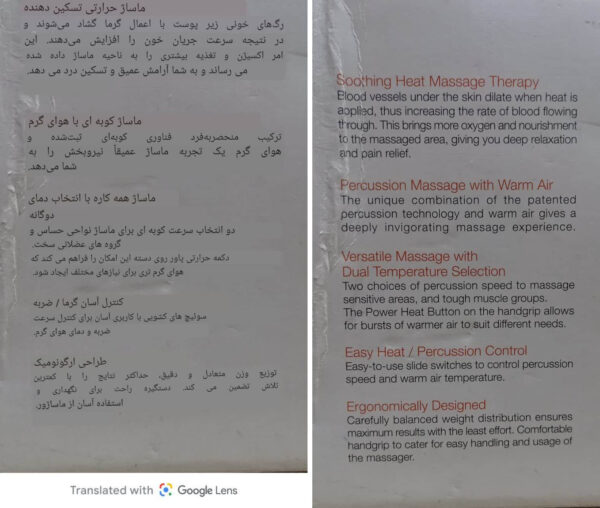 ماساژ حرارتی تسکین دهنده
رگ‌های خونی زیر پوست با اعمال گرما گشاد می‌شوند و
در نتیجه سرعت جریان خون را افزایش می‌دهند. این
امر اکسیژن و تغذیه بیشتری را به ناحیه ماساژ داده شده
می رساند و به شما آرامش عمیق و تسکین درد می دهد.
ماساژ کوبه ای با هوای گرم
ترکیب منحصربه‌فرد فناوری کوبه‌ای ثبت‌شده و
هوای گرم یک تجربه ماساژ عمیقاً نیروبخش را به
شما می‌دهد.
ماساژ همه کاره با انتخاب دمای
دوگانه
دو انتخاب سرعت کوبه ای برای ماساژ نواحی حساس و
گروه های عضلانی سخت.
دکمه حرارتی پاور روی دسته این امکان را فراهم می کند که
هوای گرم تری برای نیازهای مختلف ایجاد شود.
کنترل آسان گرما / ضربه
سوئیچ های کشویی با کاربری آسان برای کنترل سرعت
ضربه و دمای هوای گرم.
طراحی ارگونومیک
توزیع وزن متعادل و دقیق، حداکثر نتایج را با کمترین
تلاش تضمین می کند. دستگیره راحت برای نگهداری و
استفاده آسان از ماساژور.
Translated with Google Lens
Soothing Heat Massage Therapy
Blood vessels under the skin dilate when heat is
applied, thus increasing the rate of blood flowing
through. This brings more oxygen and nourishment
to the massaged area, giving you deep relaxation
and pain relief.
Percussion Massage with Warm Air
The unique combination of the patented
percussion technology and warm air gives a
deeply invigorating massage experience.
Versatile Massage with
Dual Temperature Selection
Two choices of percussion speed to massage
sensitive areas, and tough muscle groups.
The Power Heat Button on the handgrip allows
for bursts of warmer air to suit different needs.
Easy Heat / Percussion Control
Easy-to-use slide switches to control percussion
speed and warm air temperature.
Ergonomically Designed
Carefully balanced weight distribution ensures
maximum results with the least effort. Comfortable
handgrip to cater for easy handling and usage of
the massager.